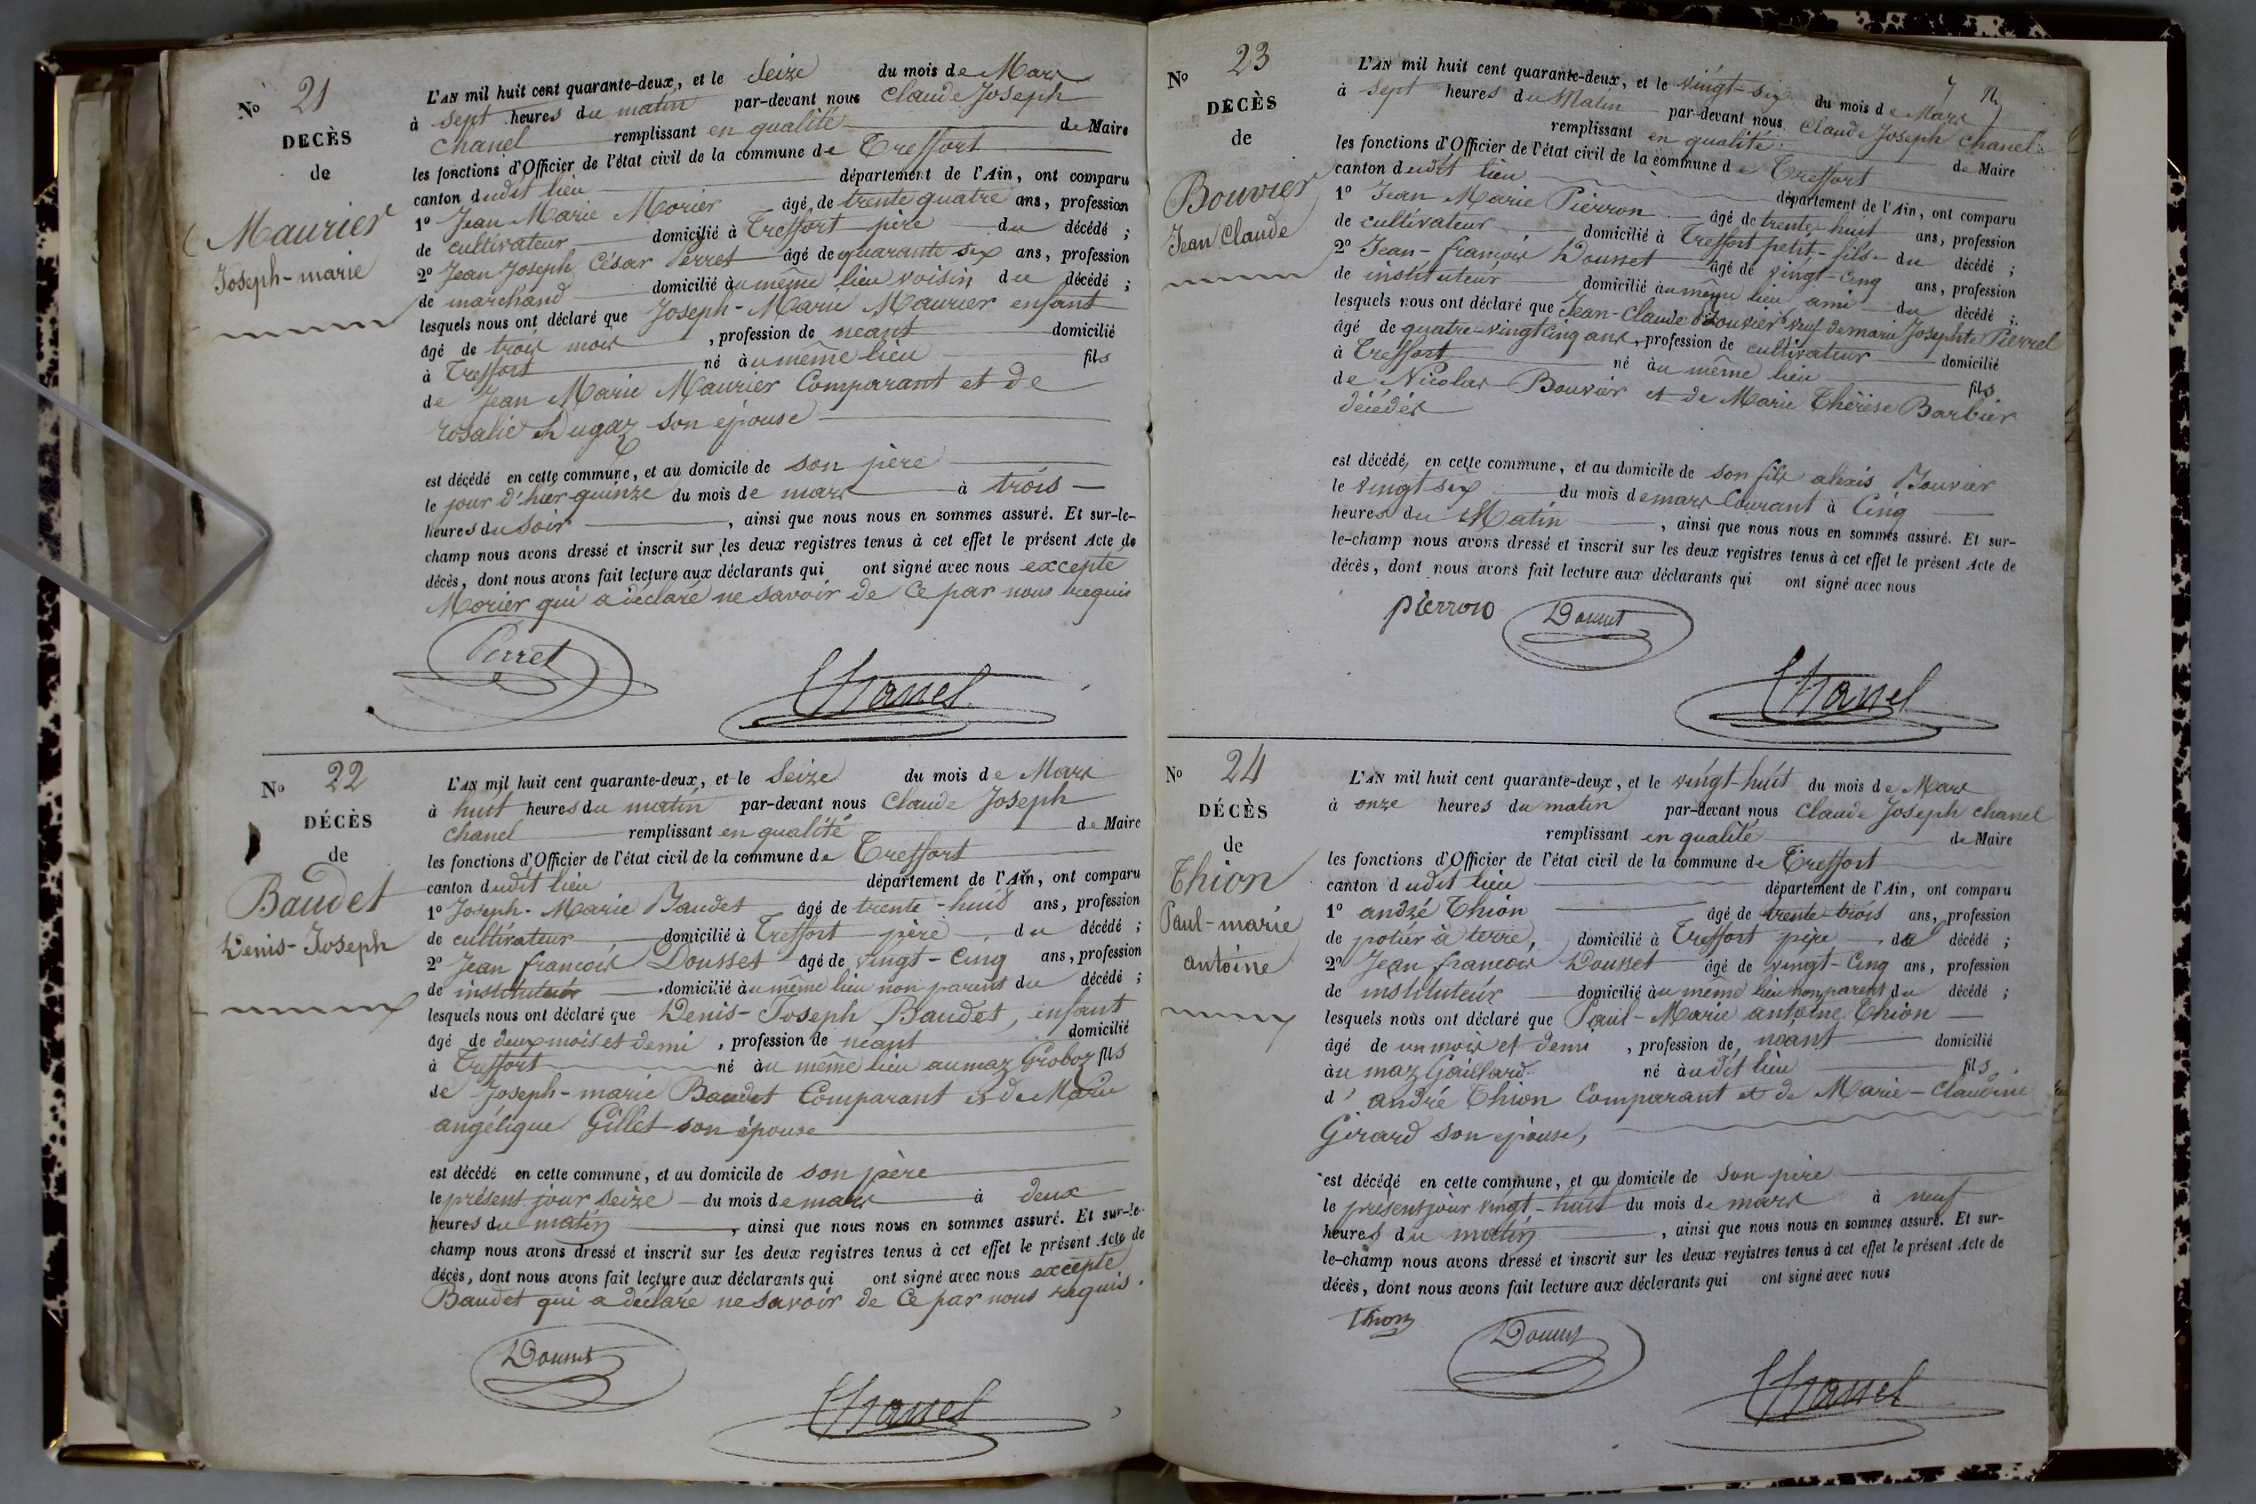 No 21
DECÈS
de
Maurier
Joseph-marie
L'AN mil huit cent quarante-deux, et le Seize du mois de Mars
à sept heures du matin par-devant nous Claude Joseph
chanel remplissant en qualité de Maire
les fonctions d'Officier de l'état civil de la commune de Treffort
canton dudit lieu département de l'Ain, ont comparu
1º Jean Marie Morier âgé de trente quatre ans, profession
de cultivateur domicilié à Treffort père du décédé ;
2º Jean Joseph César Perret âgé de quarante six ans, profession
de marchand domicilié au même lieu voisin du décédé ;
lesquels nous ont déclaré que Joseph-Marie Maurier enfant
âgé de trois mois , profession de neant domicilié
à Treffort né au même lieu fils
de Jean Marie Maurier Comparant et de
rosalie Dugaz son épouse
est décédé en cette commune, et au domicile de son père
le jour d'hier quinze du mois de mars à trois
heures du soir , ainsi que nous nous en sommes assuré. Et sur-le-
champ nous avons dressé et inscrit sur les deux registres tenus à cet effet le présent Acte de
décès, dont nous avons fait lecture aux déclarants qui ont signé avec nous excepté
Morier qui a déclaré ne savoir de ce par nous requis
Perret
Chanel
No 22
DÉCÈS
de
Baudet
Denis-Joseph
L'AN mil huit cent quarante-deux, et le Seize du mois de Mars
à huit heures du matin par-devant nous Claude Joseph
chanel remplissant en qualité de Maire
les fonctions d'Officier de l'état civil de la commune de Treffort
canton dudit lieu département de l'Ain, ont comparu
1º Joseph-Marie Baudet âgé de trente-huit ans, profession
de cultivateur domicilié à Treffort père du décédé ;
2º Jean francois Dousset âgé de vingt-Cinq ans, profession
de instituteur domicilié au même lieu non parent du décédé ;
lesquels nous ont déclaré que Denis-Joseph Baudet, enfant
âgé de deux mois et demi , profession de neant domicilié
à Treffort né au même lieu au maz Groboz fils
de Joseph-marie Baudet Comparant et de Marie
angélique Gillet son épouse
est décédé en cette commune, et au domicile de son père
le présent jour seize du mois de mars à deux
heures du matin , ainsi que nous nous en sommes assuré. Et sur-le-
champ nous avons dressé et inscrit sur les deux registres tenus à cet effet le présent Acte de
décès, dont nous avons fait lecture aux déclarants qui ont signé avec nous excepté
Baudet qui a déclaré ne savoir de ce par nous requis.
Dousset
Chanel
No 23
DÉCÈS
de
Bouvier
Jean Claude
L'AN mil huit cent quarante-deux, et le vingt-six du mois de Mars
à sept heures du Matin par-devant nous Claude Joseph Chanel
remplissant en qualité de Maire
les fonctions d'Officier de l'état civil de la commune de Treffort
canton dudit lieu département de l'Ain, ont comparu
1º Jean Marie Pierron âgé de trente huit ans, profession
de cultivateur domicilié à Treffort petit-fils du décédé ;
2º Jean-françois Dousset âgé de vingt-Cinq ans, profession
de instituteur domicilié au même lieu ami du décédé ;
lesquels nous ont déclaré que Jean-Claude Bouvier veuf de marie Josephte Pierrel
âgé de quatre-vingt Cinq ans, profession de cultivateur domicilié
à Treffort né au même lieu fils
de Nicolas Bouvier et de Marie Thérèse Barbier
décédés
est décédé, en cette commune, et au domicile de son fils alexis Bouvier
le vingt six du mois de mars Courant à Cinq
heures du Matin , ainsi que nous nous en sommes assuré. Et sur-
le-champ nous avons dressé et inscrit sur les deux registres tenus à cet effet le présent Acte de
décès, dont nous avons fait lecture aux déclarants qui ont signé avec nous
pierron
Dousset
Chanel
No 24
DÉCÈS
de
Thion
Paul-marie
antoine
L'AN mil huit cent quarante-deux, et le vingt huit du mois de Mars
à onze heures du matin par-devant nous Claude Joseph chanel
remplissant en qualité de Maire
les fonctions d'Officier de l'état civil de la commune de Treffort
canton dudit lieu département de l'Ain, ont comparu
1º andré Thion âgé de trente-trois ans, profession
de potier à terre, domicilié à Treffort père du décédé ;
2º Jean francois Dousset âgé de vingt-Cinq ans, profession
de instituteur domicilié au même lieu non parent du décédé ;
lesquels nous ont déclaré que Paul-Marie antoine Thion
âgé de un mois et demi , profession de neant domicilié
au maz Gaillard né audit lieu fils
d'andré Thion Comparant et de Marie-Claudine
Girard son épouse,
est décédé en cette commune, et au domicile de son père
le présent jour vingt-huit du mois de mars à neuf
heures du matin , ainsi que nous nous en sommes assuré. Et sur-
le-champ nous avons dressé et inscrit sur les deux registres tenus à cet effet le présent Acte de
décès, dont nous avons fait lecture aux déclarants qui ont signé avec nous
Thion
Dousset
Chanel